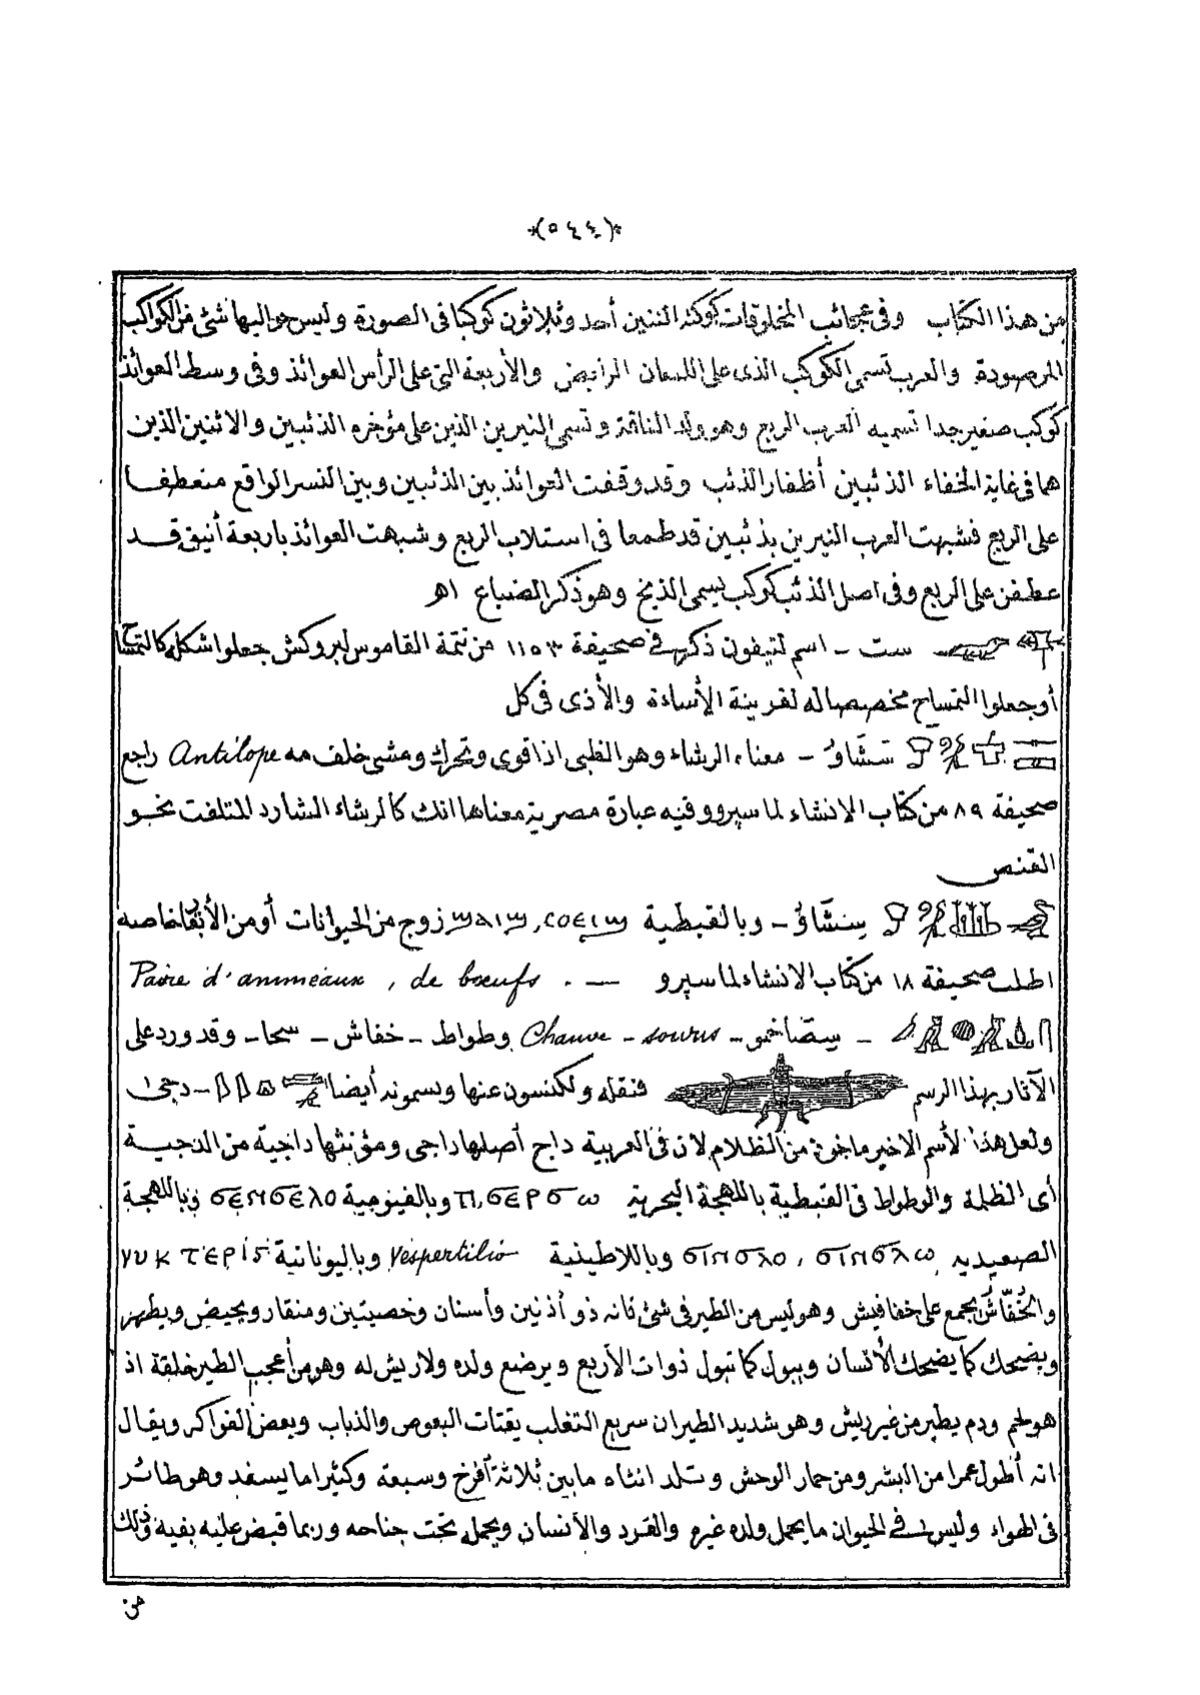 *(٥٤٤)*
من هذا الكتاب وفى عجائب المخلوقات كوكبة التنين أحد وثلاثون كوكبا فى الصورة وليس حواليها شئ من الكواكب
المرصودة والعرب تسمى الكوكب الذى على اللسان الرابض والأربعة التى على الرأس العوائذ وفى وسط العوائذ
كوكب صغير جدا تسميه العرب الربع وهو ولد الناقة وتسمى النيرين الذين على مؤخره الذئبين والاثنين الذين
هما فى غاية الخفاء الذئبين أظفار الذئب وقد وقفت العوائذ بين الذئبين وبين النسر الواقع منعطفا
على الربع فشبهت العرب النيرين بذئبين قد طمعا فى استلاب الربع وشبهت العوائذ باربعة أنيق قد
عطفن على الربع وفى اصل الذئب كوكب يسمى الذيخ وهو ذكر الضباع اهـ
ست - اسم لتيفون ذكر فى صحيفة ١١٥٣ من تتمة القاموس لبروكش جعلوا شكله كالتمساح
أو جعلوا التمساح مخصصا له لقرينة الأساءة والأذى فى كل
سَشَاوُ - معناه الرشاء وهو الظبى اذا قوى وتحرك ومشى خلف مه Antilope راجع
صحيفة ٨٩ من كتاب الانشاء لماسپرو وفيه عبارة مصرية معناها انك كالرشاء الشارد المتلفت نحو
القنص
سِنشَاوُ - وبالقبطية ϣⲁⲓϣ, ⲥⲟⲉⲓϣ زوج من الحيوانات أو من الأبقار خاصة
اطلب صحيفة ١٨ من كتاب الانشاء لماسپرو — . Paire d'animeaux , de bœufs
- سِضَاخمو - Chauve - souris وطواط - خفاش - سحا - وقد ورد على
الآثار بهذا الرسم فنقله ولكنسون عنها ويسمونه أيضا - دجى ١
ولعل هذا الأسم الاخير ماخوذ من الظلام لان فى العربية داج أصلها داجى ومؤنثها داجية من الدجية
أى الظلمة والوطواط فى القبطية باللهجة البحرية ⲡⲓ,ϭⲉⲣϭⲱ وبالفيومية ϭⲉⲛϭⲉⲗⲟ وباللهجة
الصعيديه ϭⲓⲛϭⲗⲱ , ϭⲓⲛϭⲗⲟ وباللاطينية Vespertilio وباليونانية νυκτερίς
والخُفّاشُ يجمع على خفافيش وهو ليس من الطير فى شئ فانه ذو أذنين وأسنان وخصيتين ومنقار ويحيض ويطهر
ويضحك كما يضحك الأنسان ويبول كما تبول ذوات الأربع ويرضع ولده ولا ريش له وهو من أعجب الطير خلقة اذ
هو لحم ودم يطير من غير ريش وهو شديد الطيران سريع التغلب يقتات البعوص والذباب وبعض الفواكه ويقال
انه أطول عمرا من البشر ومن حمار الوحش وتلد انثاه ما بين ثلاثة أفرخ وسبعة وكثيرا ما يسفد وهو طائر
فى الهواء وليس فى الحيوان ما يحمل ولده غيره والقرد والانسان ويحمله تحت جناحه وربما قبض عليه بفيه وذلك
من